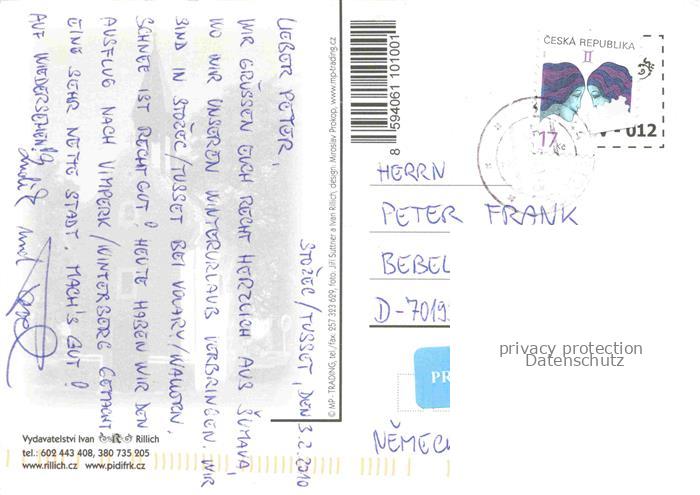 STOŽEC/TUSSET, DEN 3.2.2010
LIEBER PETER,
WIR GRÜSSEN EUCH RECHT HERZLICH AUS ŠUMAVA,
WO WIR UNSEREN WINTERURLAUB VERBRINGEN. WIR
SIND IN STOŽEC/TUSSET BEI VOLARY/WALLERN.
SCHNEE IST RECHT GUT! HEUTE HABEN WIR DEN
AUSFLUG NACH VIMPERK/WINTERBERG GEMACHT
EINE SEHR NETTE STADT. MACH'S GUT!
AUF WIEDERSEHEN!
Vydavatelství Ivan Rillich
tel.: 602 443 408, 380 735 205
www.rillich.cz www.pidifrk.cz
© MP - TRADING, tel./fax: 257 323 629, foto: Jiří Suttner a Ivan Rillich, design: Miroslav Prokop, www.mp-trading.cz
8 594061 101001
ČESKÁ REPUBLIKA
II
17
012
HERRN
PETER FRANK
BEBEL
D-7019
privacy protection
Datenschutz
PR
NĚMEC